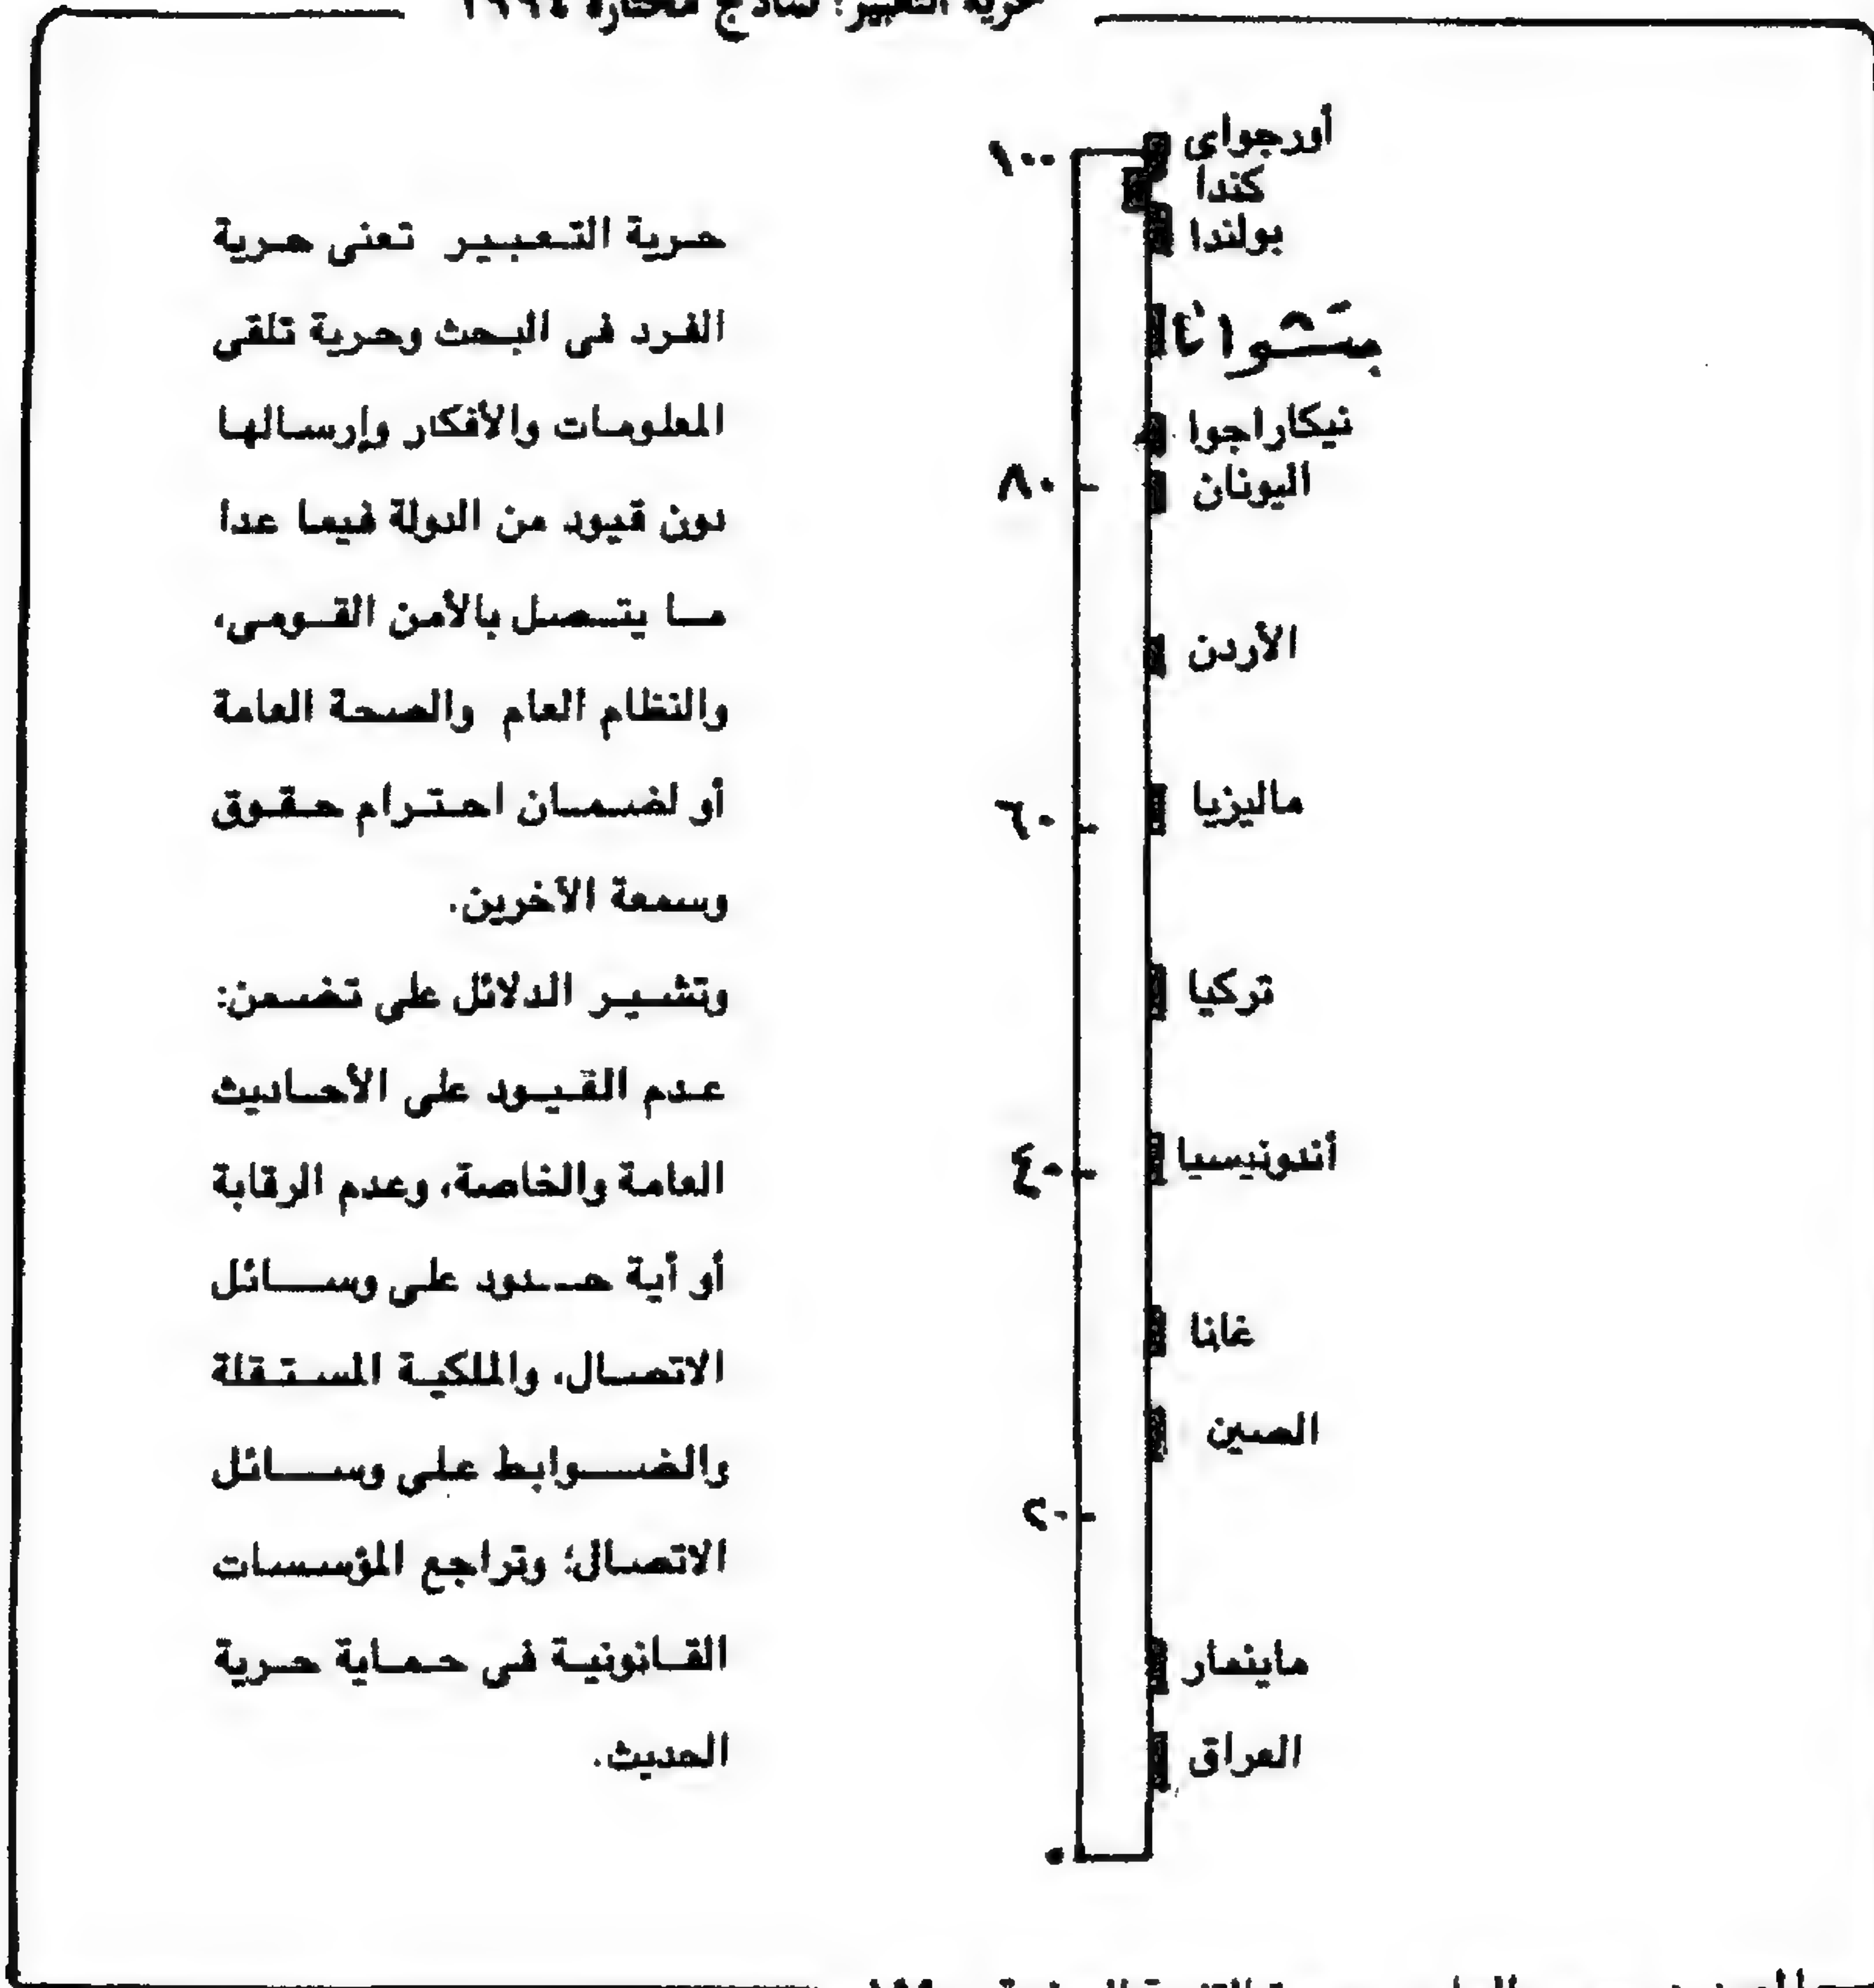 حرية التعبير: نماذج مختارة ١٩٩٤
١٠٠
٨٠
٦٠
٤٠
٢٠
٠
أورجواى
كندا
بولندا
بتسوانا
نيكاراجوا
اليونان
الأردن
ماليزيا
تركيا
أندونيسيا
غانا
الصين
ماينمار
العراق
حرية التعبير تعنى حرية
الفرد فى البحث وحرية تلقى
المعلومات والأفكار وإرسالها
دون قيود من الدولة فيما عدا
ما يتصل بالأمن القومى،
والنظام العام والصحة العامة
أو لضمان احترام حقوق
وسمعة الآخرين.
وتشير الدلائل على تضمن:
عدم القيود على الأحاديث
العامة والخاصة، وعدم الرقابة
أو أية حدود على وسائل
الاتصال، والملكية المستقلة
والضوابط على وسائل
الاتصال؛ وتراجع المؤسسات
القانونية فى حماية حرية
الحديث.